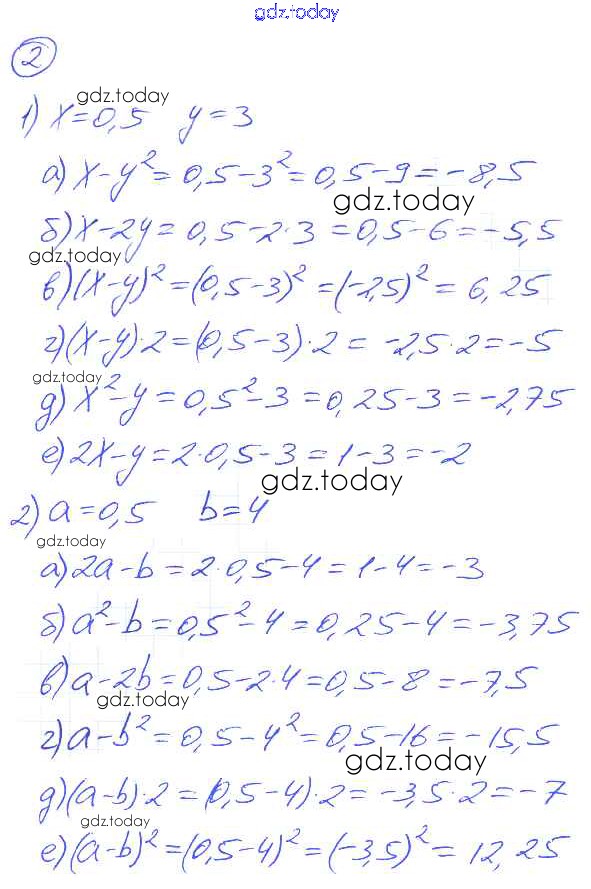 gdz.today
2
gdz.today
1) x=0,5 y=3
а) x-y²=0,5-3²=0,5-9=-8,5
gdz.today
б) x-2y=0,5-2·3=0,5-6=-5,5
gdz.today
в) (x-y)²=(0,5-3)²=(-2,5)²=6,25
г) (x-y)·2=(0,5-3)·2=-2,5·2=-5
gdz.today
д) x²-y=0,5²-3=0,25-3=-2,75
е) 2x-y=2·0,5-3=1-3=-2
gdz.today
2) a=0,5 b=4
gdz.today
а) 2a-b=2·0,5-4=1-4=-3
б) a²-b=0,5²-4=0,25-4=-3,75
в) a-2b=0,5-2·4=0,5-8=-7,5
gdz.today
г) a-b²=0,5-4²=0,5-16=-15,5
gdz.today
д) (a-b)·2=(0,5-4)·2=-3,5·2=-7
gdz.today
е) (a-b)²=(0,5-4)²=(-3,5)²=12,25